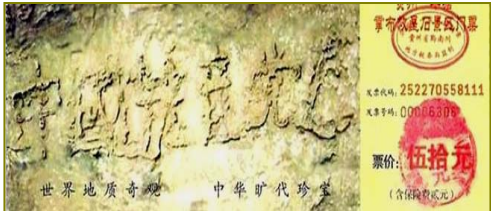 中國共产党
世界地质奇观 中华旷代珍宝
掌布救星石景区门票
贵州省黔南州
发票代码: 252270558111
发票号码: 00006306
票价: 伍拾元
(含保险费贰元)